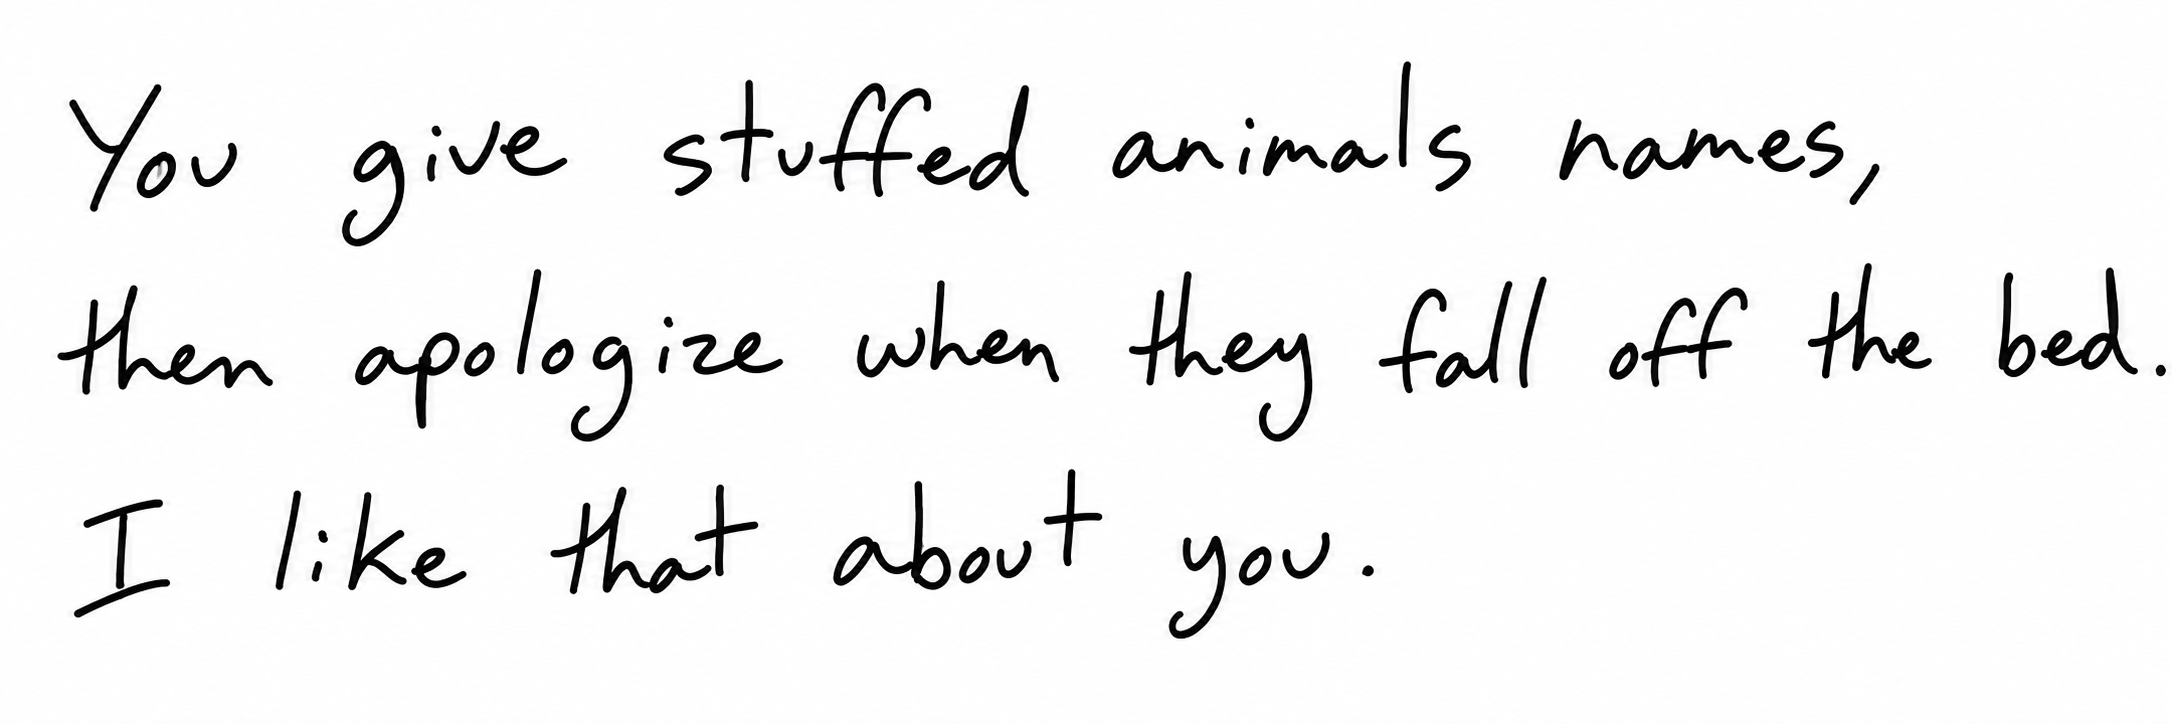 You give stuffed animals names,
then apologize when they fall off the bed.
I like that about you.